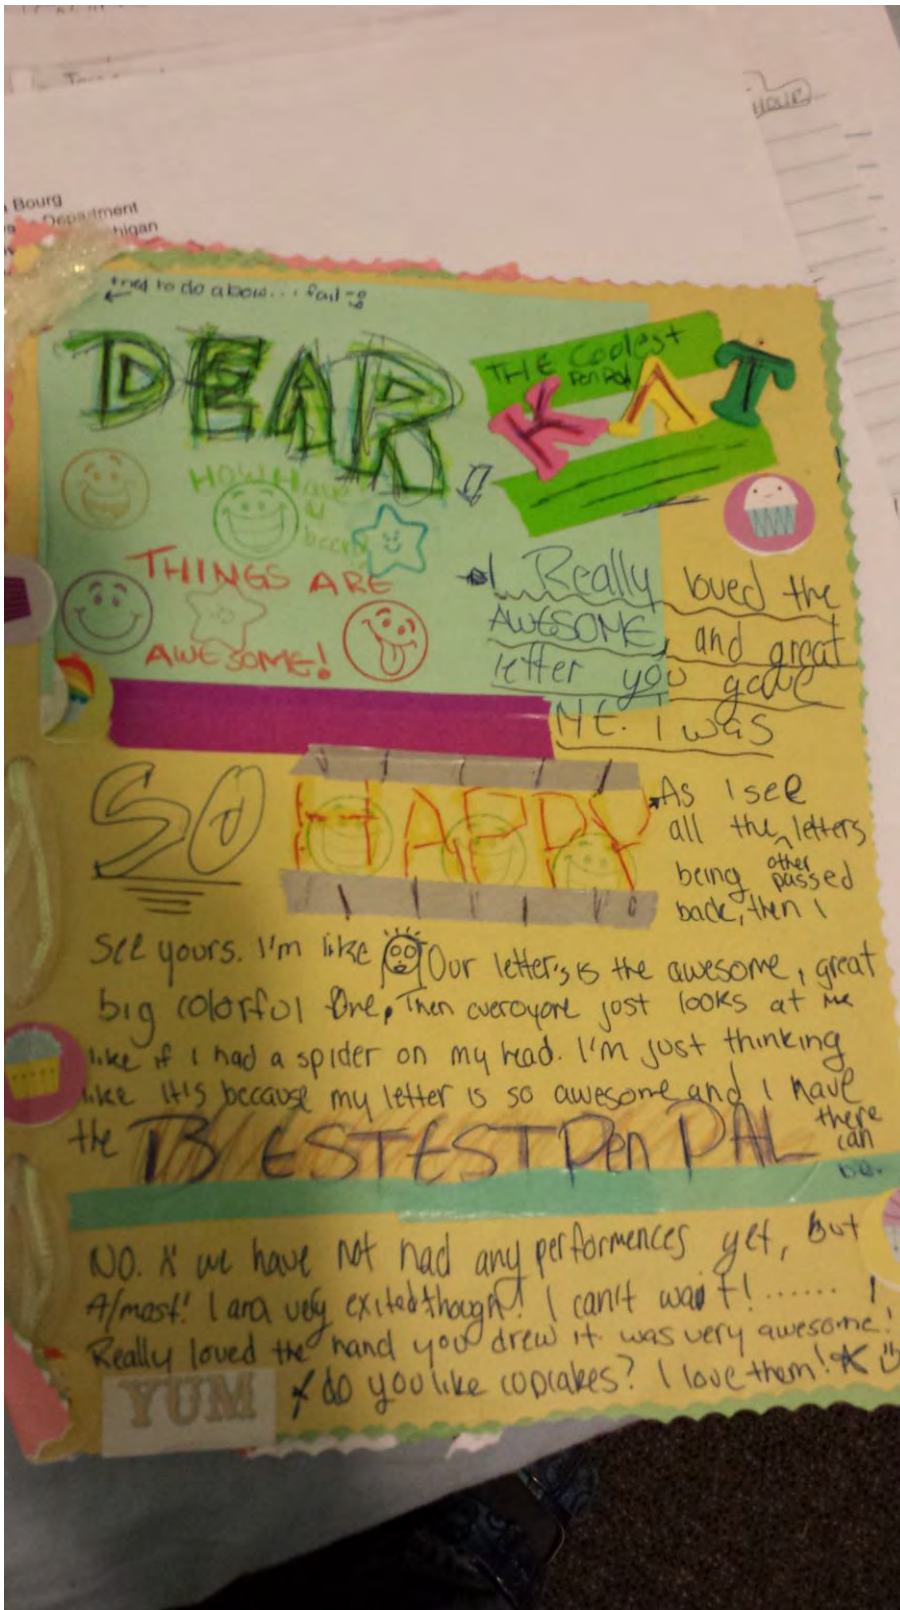 HOUR
Bourg
Department
higan
tried to do a bow... fail
DEAR
THE Coolest
Pen Pal
KAT
HOW Have
U
been
THINGS ARE
AWESOME!
I Really loved the
AWESOME, and great
letter you gave
ME. I was
SO HAPPY
As I see
all the other letters
being passed
back, then I
see yours. I'm like Our letter's is the awesome, great
big colorful One, Then everoyone just looks at me
like if I had a spider on my head. I'm just thinking
like it's because my letter is so awesome and I have
the BESTEST Pen PAL there
can
be.
NO. we have not had any performences yet, But
Almost! I am very exited though! I can't wait!...... I
Really loved the hand you drew it was very awesome!
YUM do you like cupcakes? I love them!